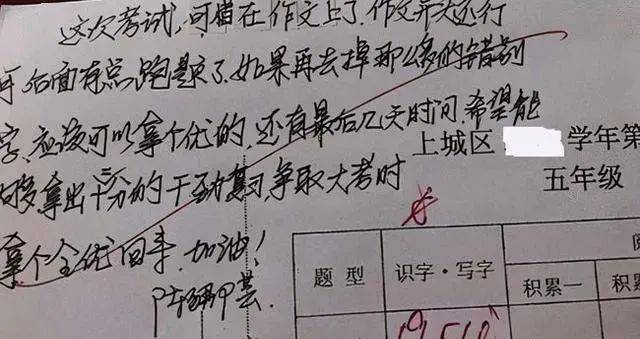 这次考试,可惜在作文上了.作文开头还行
后面有点跑题了.如果再去掉那么多的错别
字.应该可以拿个优的.还有最后几天时间.希望能
够拿出十二分的干劲复习.争取大考时
拿个全优回来.加油!
上城区 学年第
五年级
题 型 识字·写字
积累一 积累